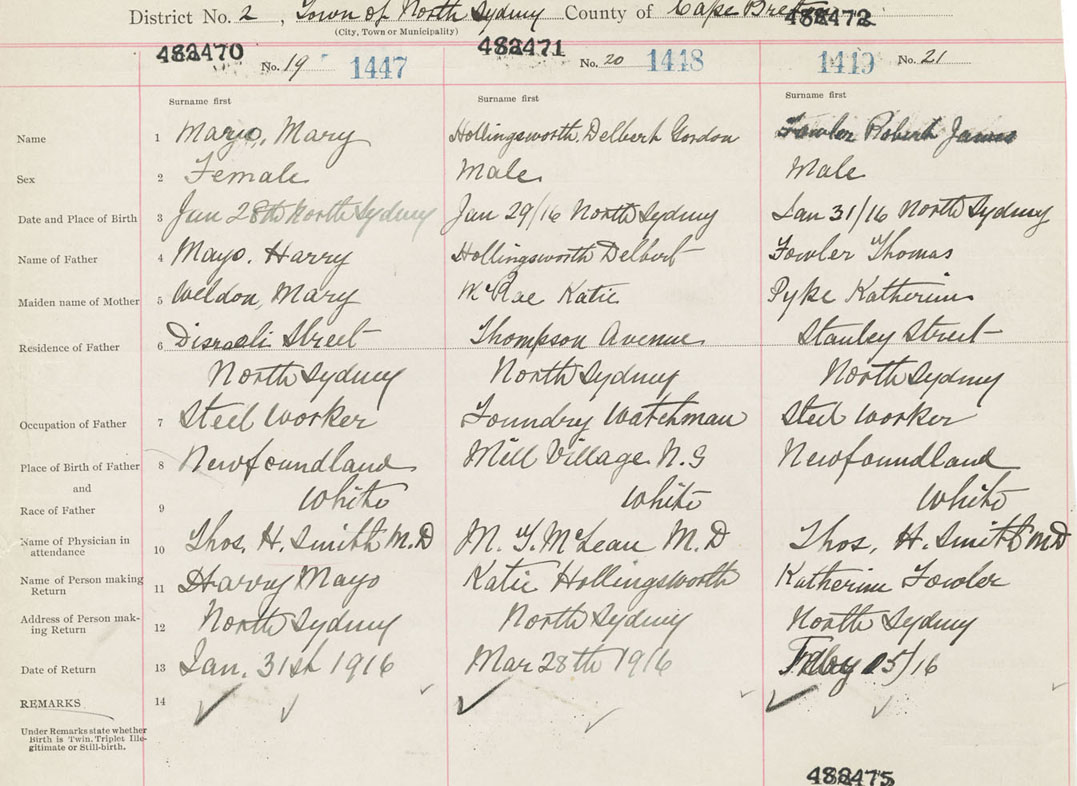 District No. 2, Town of North Sydney County of Cape Breton
(City, Town or Municipality)
482470 482471 482472
No. 19 1447 No. 20 1448 1419 No. 21
Surname first Surname first Surname first
Name 1 Mayo, Mary Hollingsworth, Delbert Gordon Fowler Robert James
Sex 2 Female Male Male
Date and Place of Birth 3 Jan 28th North Sydney Jan 29/16 North Sydney Jan 31/16 North Sydney
Name of Father 4 Mayo. Harry Hollingsworth Delbert Fowler Thomas
Maiden name of Mother 5 Weldon, Mary McRae Katie Pyke Katherine
Residence of Father 6 Disraeli Street Thompson Avenue Stanley Street
North Sydney North Sydney North Sydney
Occupation of Father 7 Steel Worker Foundry Watchman Steel Worker
Place of Birth of Father 8 Newfoundland Mill Village N.S Newfoundland
and
Race of Father 9 White White White
Name of Physician in attendance 10 Thos. H. Smith M.D M. T. McLean M.D Thos. H. Smith MD
Name of Person making Return 11 Harry Mayo Katie Hollingsworth Katherine Fowler
Address of Person making Return 12 North Sydney North Sydney North Sydney
Date of Return 13 Jan. 31st 1916 Mar 28th 1916 5/16
REMARKS 14
Under Remarks state whether
Birth is Twin, Triplet Ille-
gitimate or Still-birth.
482475